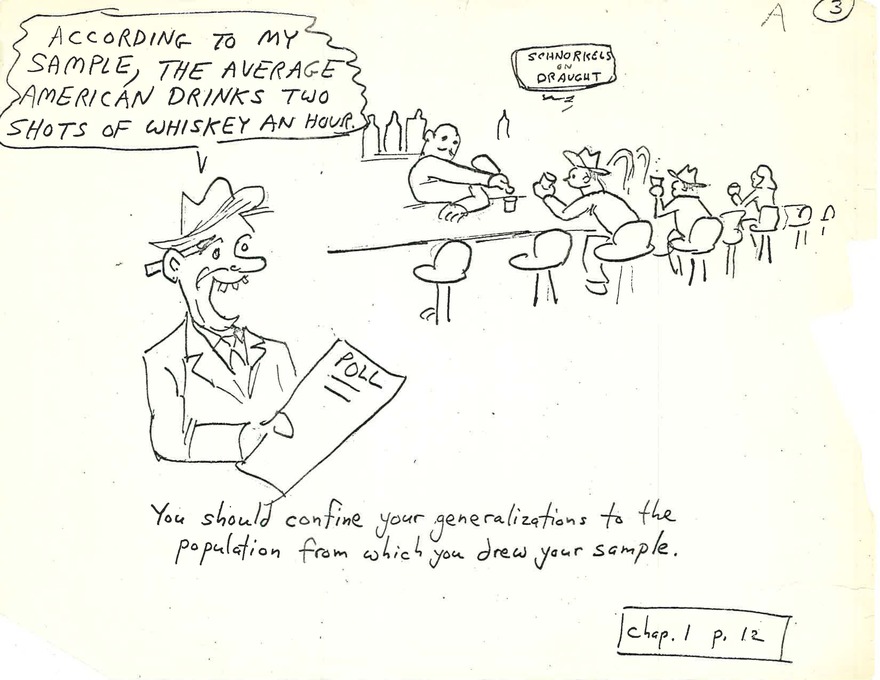 A
3
ACCORDING TO MY
SAMPLE, THE AVERAGE
AMERICAN DRINKS TWO
SHOTS OF WHISKEY AN HOUR.
SCHNORKELS
ON
DRAUGHT
POLL
You should confine your generalizations to the
population from which you drew your sample.
chap. 1 p. 12